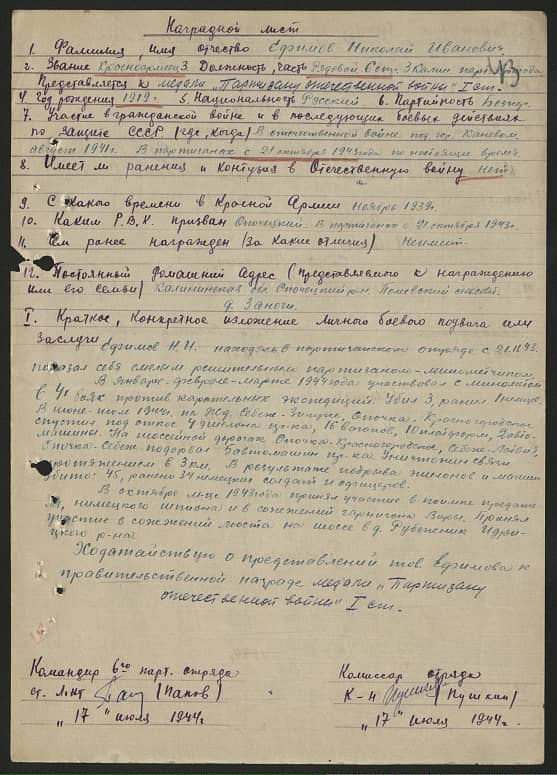 Наградной лист
43
1. Фамилия, имя отчество Ефимов Николай Иванович
2. Звание Красноармеец 3. Должность, часть Рядовой 6 отр. 3 Калин. парт.
Представляется к медали "Партизану отечественной войны" I ст.
4. Год рождения 1919г. 5. Национальность Русский. 6. Партийность
7. Участие в гражданской войне и в последующих боевых действиях
по защите СССР (где, когда) В отечественной войне под гор. Каневом,
август 1941г. В партизанах с 21 октября 1943 года по настоящее время
8. Имеет ли ранения и контузия в Отечественную войну нет
9. С какого времени в Красной Армии Ноябрь 1939г.
10. Каким Р.В.К. призван Опочецкий. В партизанах с 21 октября 1943г.
11. Чем ранее награжден (за какие отличия) Неимеет.
12. Постоянный домашний адрес (представляемого к награждению
или его семьи) Калининская обл. Опочецкий р-н.
д. Заноги.
I. Краткое, конкретное изложение личного боевого подвига или
заслуги
Ефимов Н.И. находясь в партизанском отряде с 21.10.43.
показал себя смелым решительным партизаном-минометчиком.
В январе-феврале-марте 1944 года участвовал с минометом
в 4х боях против карательных экспедиций. Убил 3, ранил 1 немцев.
В июне-июле 1944г. на ж.д. Себеж-Зилупе, Опочка-Красногородское
спустил под откос 4 эшелона пр-ка, 16 вагонов, 10 платформ, 2 авто-
машины. На шоссейной дорогах Опочка-Красногородское, Себеж-
Опочка-Себеж подорвал 5 автомашин пр-ка. Уничтожил связи
протяжением в 3 км. В результате подрыва эшелонов и машин
убито: 45, ранено 34 немецких солдат и офицеров.
В октябре м-це 1943 года принял участие в поимке предате-
ля, немецкого шпиона и в сожжений гарнизона Вары. Принял
участие в сожжений моста на шоссе в д. Рубеженик Идри-
цкого р-на.
Ходатайствую о представлений тов. Ефимова к
правительственной награде медали "Партизану
отечественной войны" I ст.
Командир 6го парт. отряда
ст. л-нт (Панов)
"17" июля 1944г.
Комиссар отряда
к-н (Пушкин)
"17" июля 1944г.